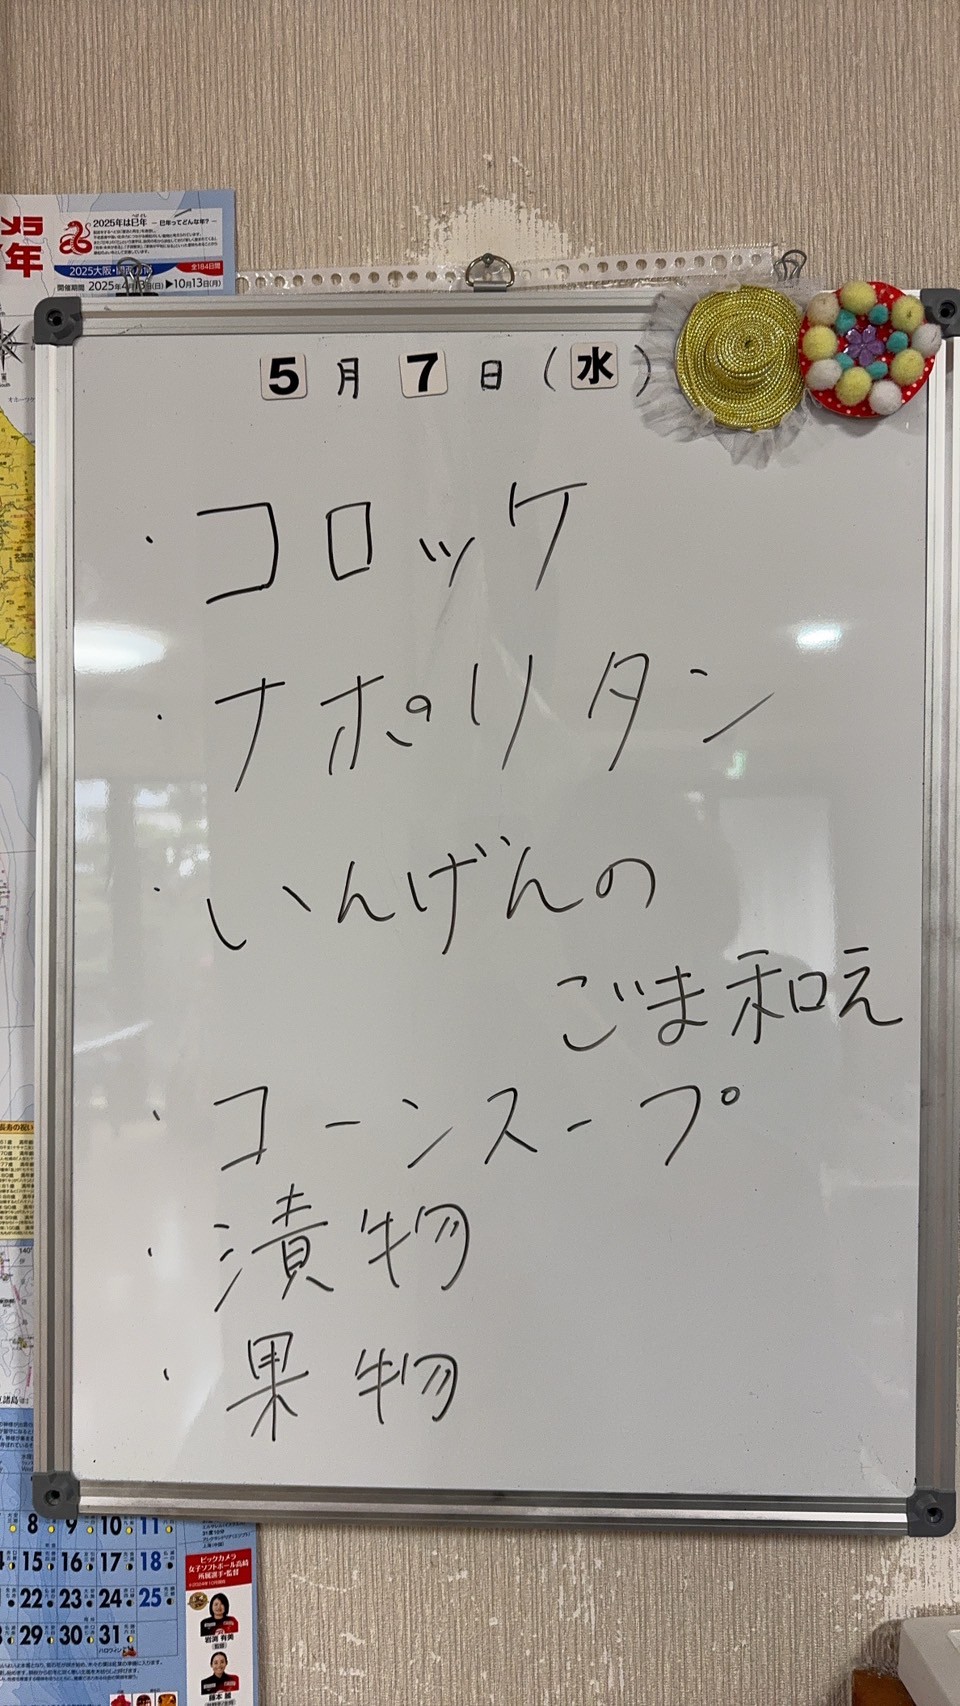 メラ
年
2025年は巳年 ー 巳年ってどんな年? ー
2025大阪・関西万博
全184日間
開催期間 2025年4月13日(日)▶10月13日(月)
5月7日(水)
・コロッケ
・ナポリタン
・いんげんの
ごま和え
・コーンスープ
・漬物
・果物
長寿の祝い
140°
8 9 10 11
15 16 17 18
22 23 24 25
29 30 31
ハロウィン
ビックカメラ
女子ソフトボール高崎
所属選手・監督
岩渕 有美
藤本 麗